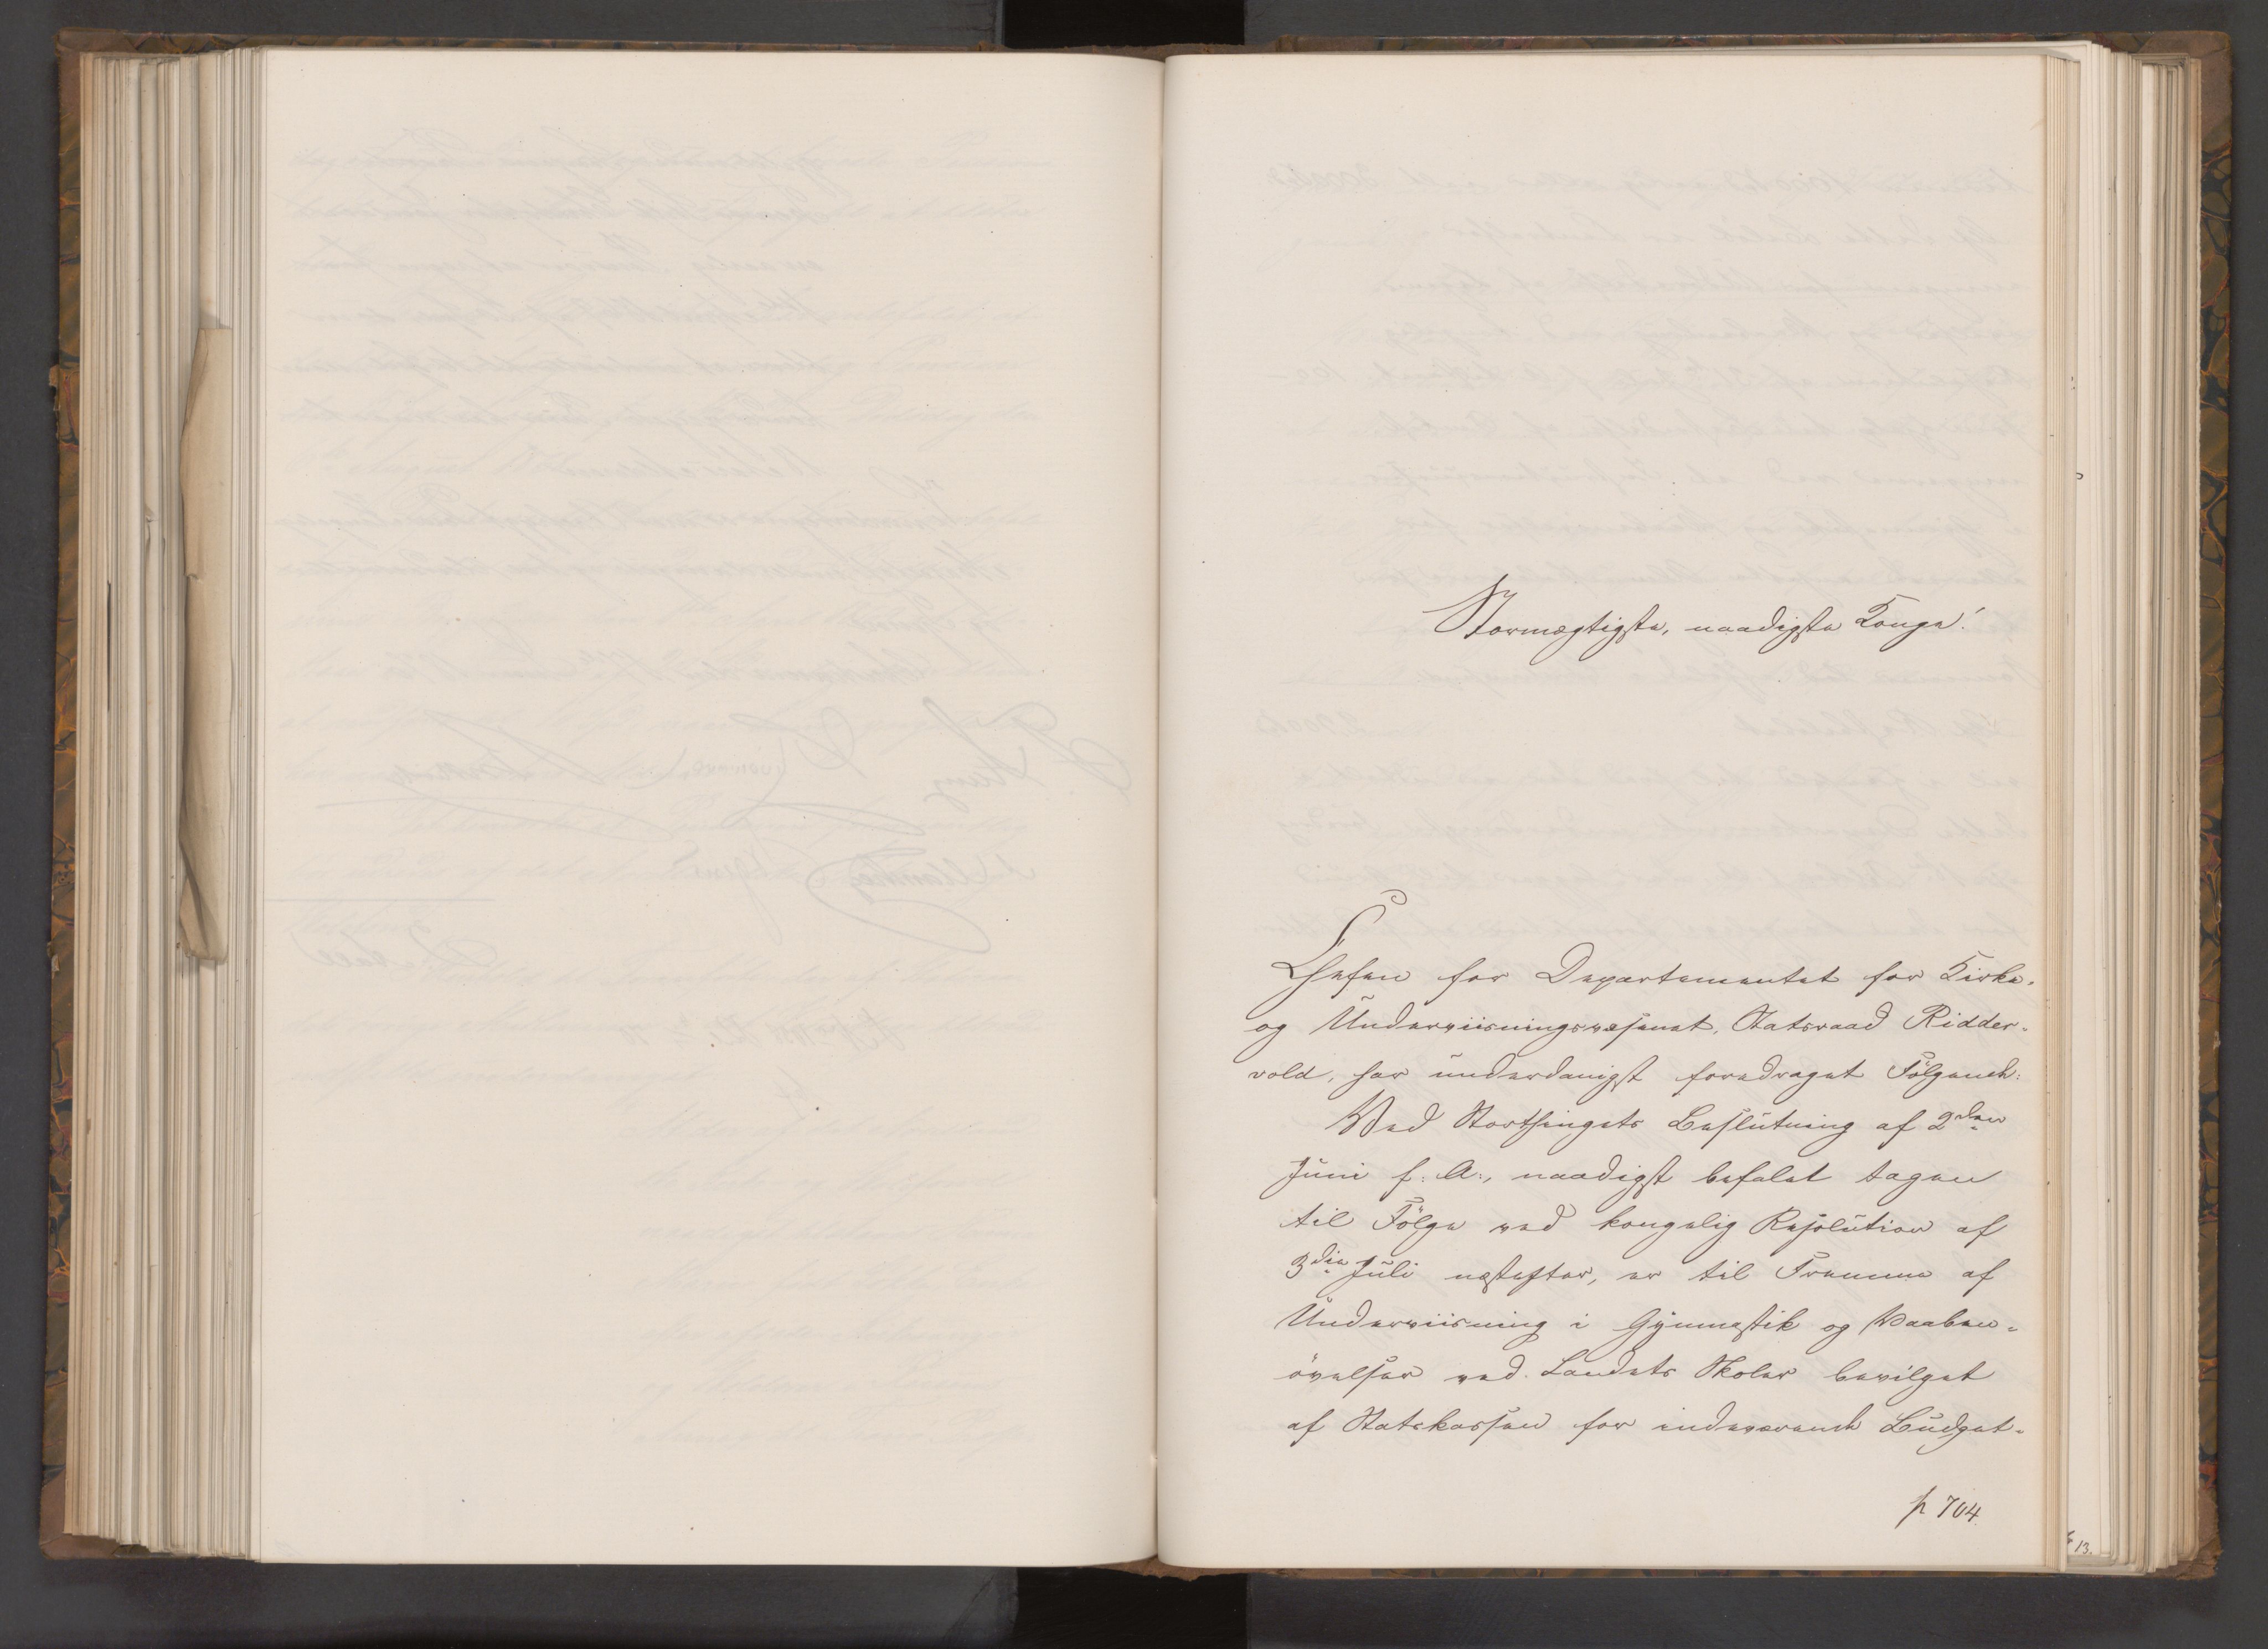 Stormægtigste, naadigste Konge!
Chefen for Departementet for Kirke-
og Underviisningsvæsenet, Statsraad Ridder-
vold, har underdanigst foredraget Følgende:
Ved Storthingets Beslutning af 2den
Juni f: A:, naadigst befalet tagen
til Følge ved kongelig Resolution af
3die Juli næstefter, er til Fremme af
Underviisning i Gymnastik og Vaaben-
øvelser ved Landets Skoler bevilget
af Statskassen for indeværende Budget-
p 704.
13.